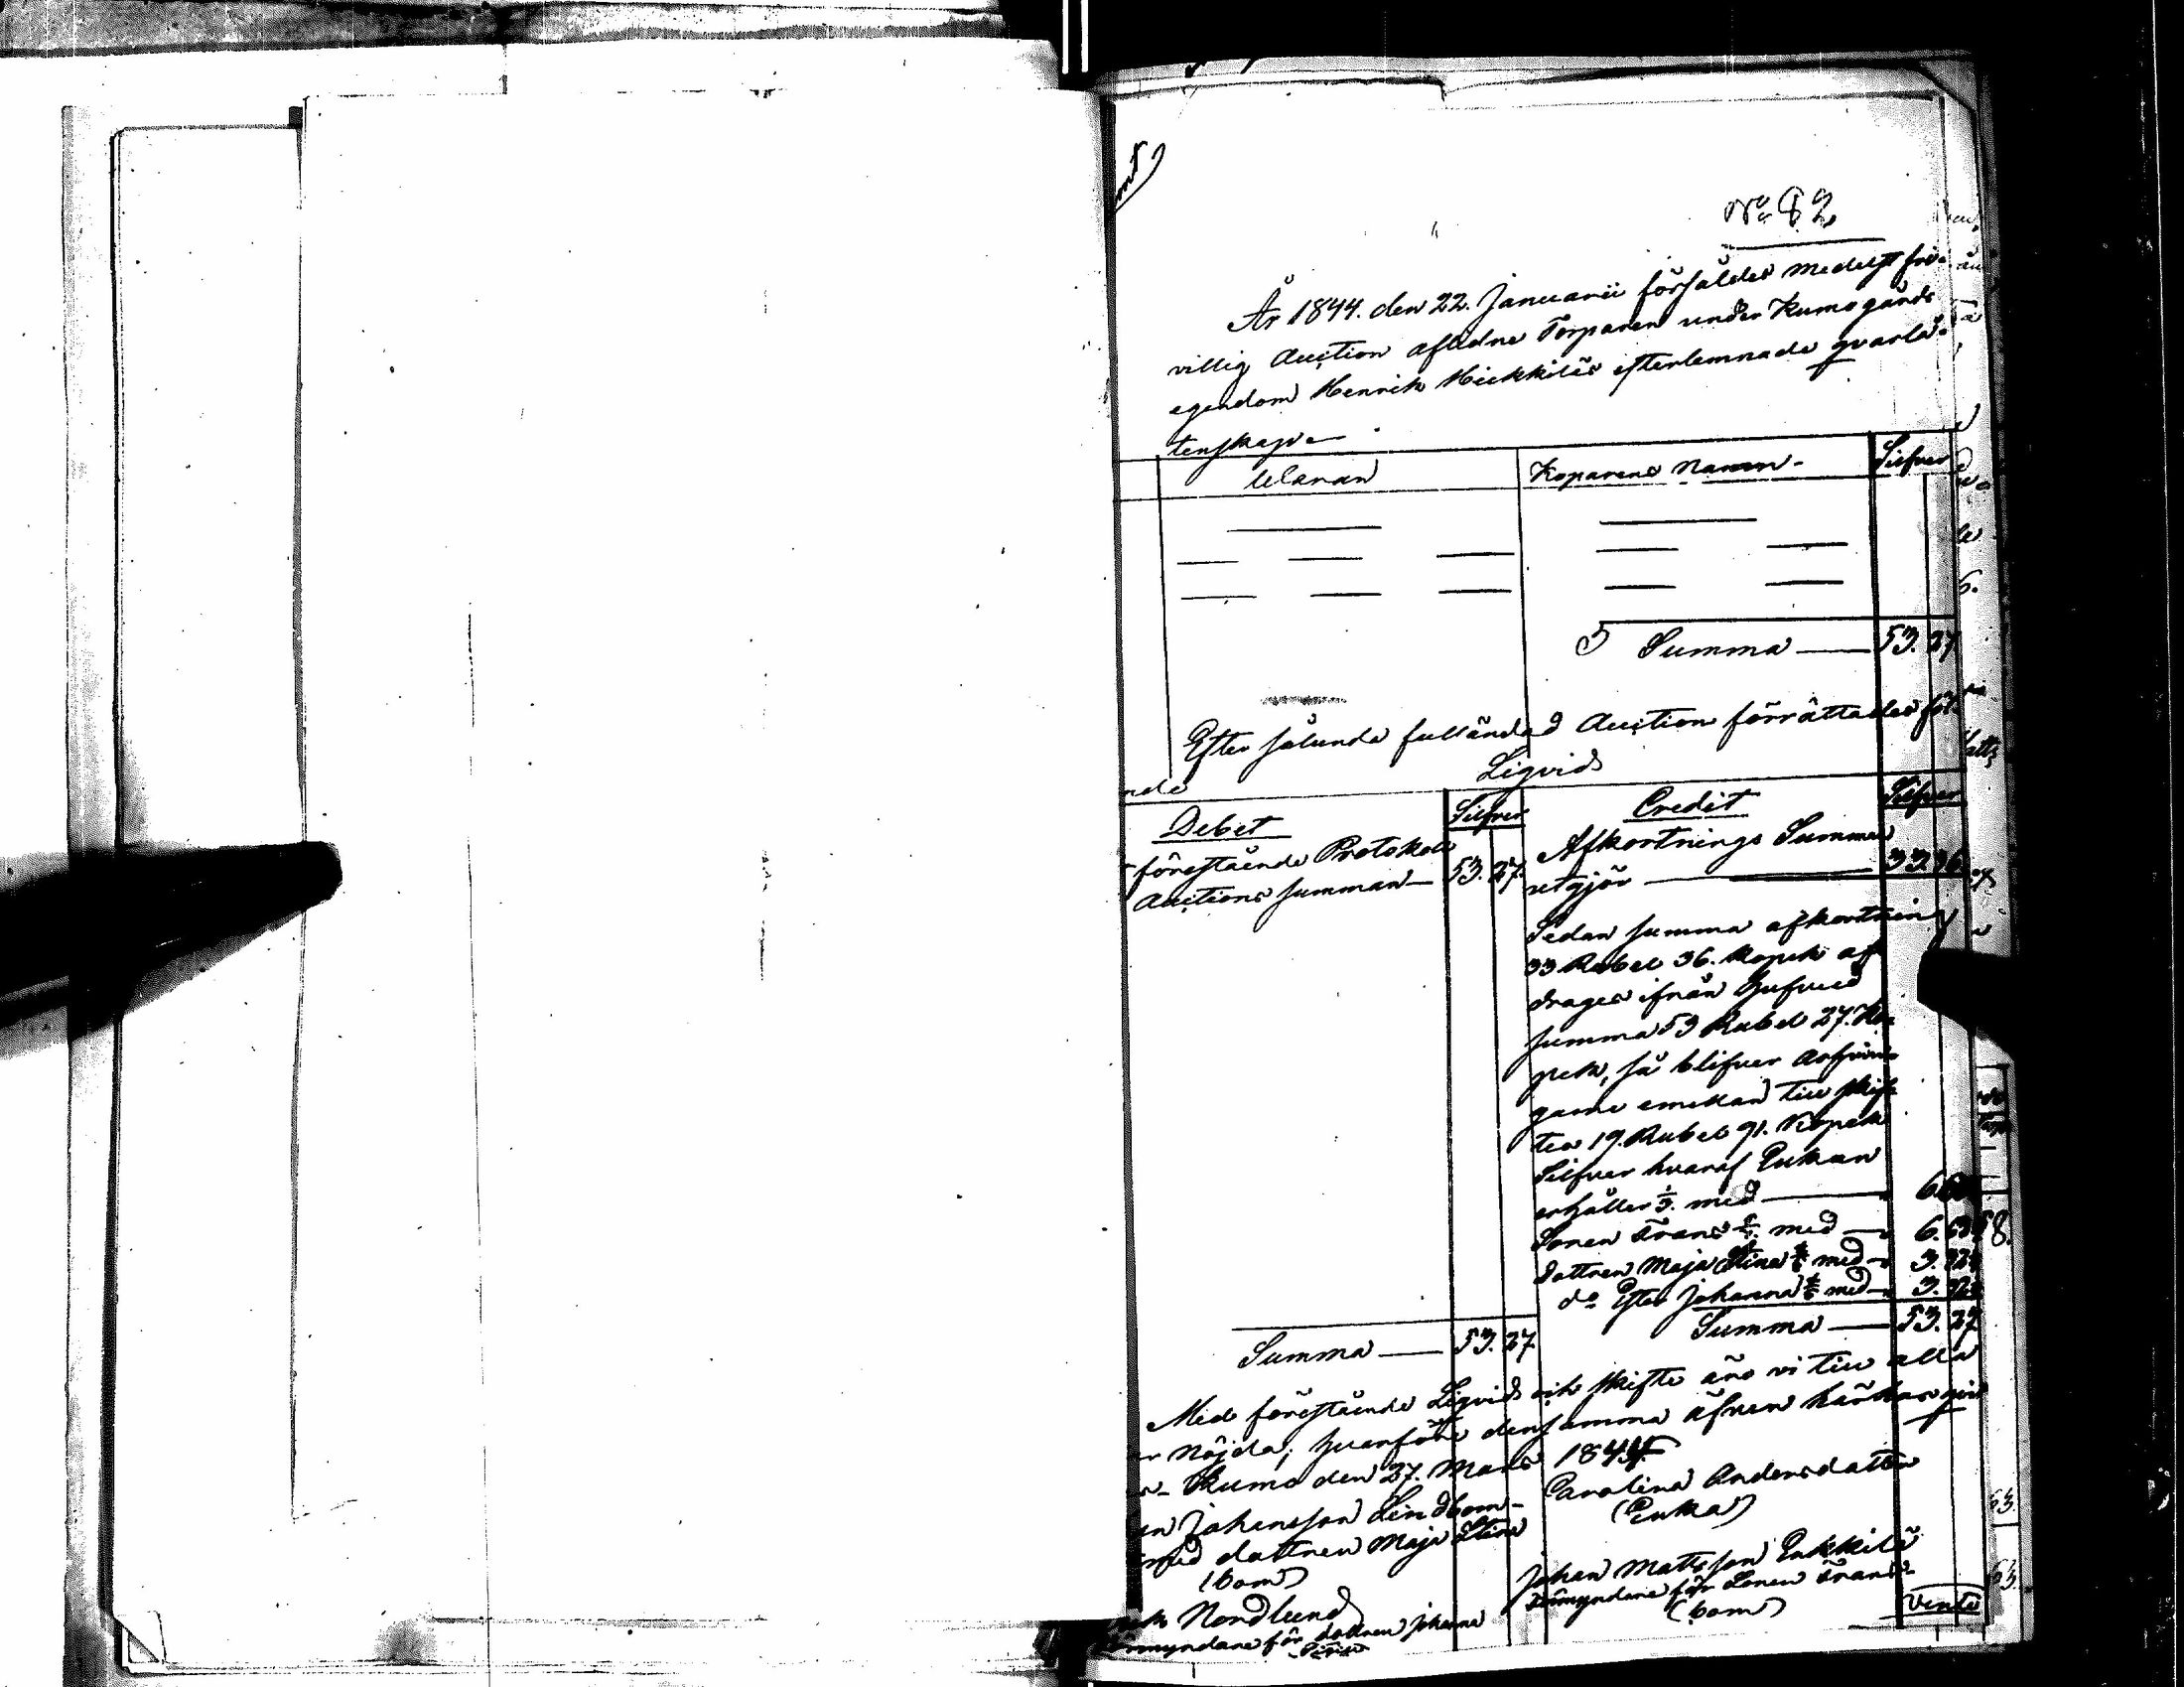 No 82
År 1844. den 22. Januarii försåldes medelst fri-
villig Auction aflidne Torparen under Kumogårds
egendom Henrik Heikkiläs efterlemnade qvarlå-
tenskap
Waran
Köparens Namn
Silfver
Summa 53. 27.
Efter sålunda fulländad Auction förrättades föl-
nde
Liqvid
Debet
Silfver
förestående Protokoll
Auctions summan 53. 27.
Summa 53. 27
Credit
Silfver
Afkortnings Summan
utgjör 33. 36
Sedan summa afkortning
33 Rubel 36. Kopek af
drages ifrån
summa 53 Rubel 27. Ko
pek, så blifver arfvin-
garne emellan till skif
tes 19. Rubel 91. Kopek
Silfver hvaraf Enkan
erhåller 1/3. med
Sonen Frans med
dottren Maja Stina med
do Johanna med
Summa 53. 27
Med förestående Liqvid och skifte äro vi till alla
nöjda; hvarföre densamma äfven härhos
Kumo den 27. Mars 1844
Johansson Lindbom
dottren Maja Stina
(bom)
Carolina Andersdotter
(Enka)
Nordlund
förmyndare för dottren Johanna
Johan Mattsson
förmyndare för Sonen Frans
(bom)
Vend